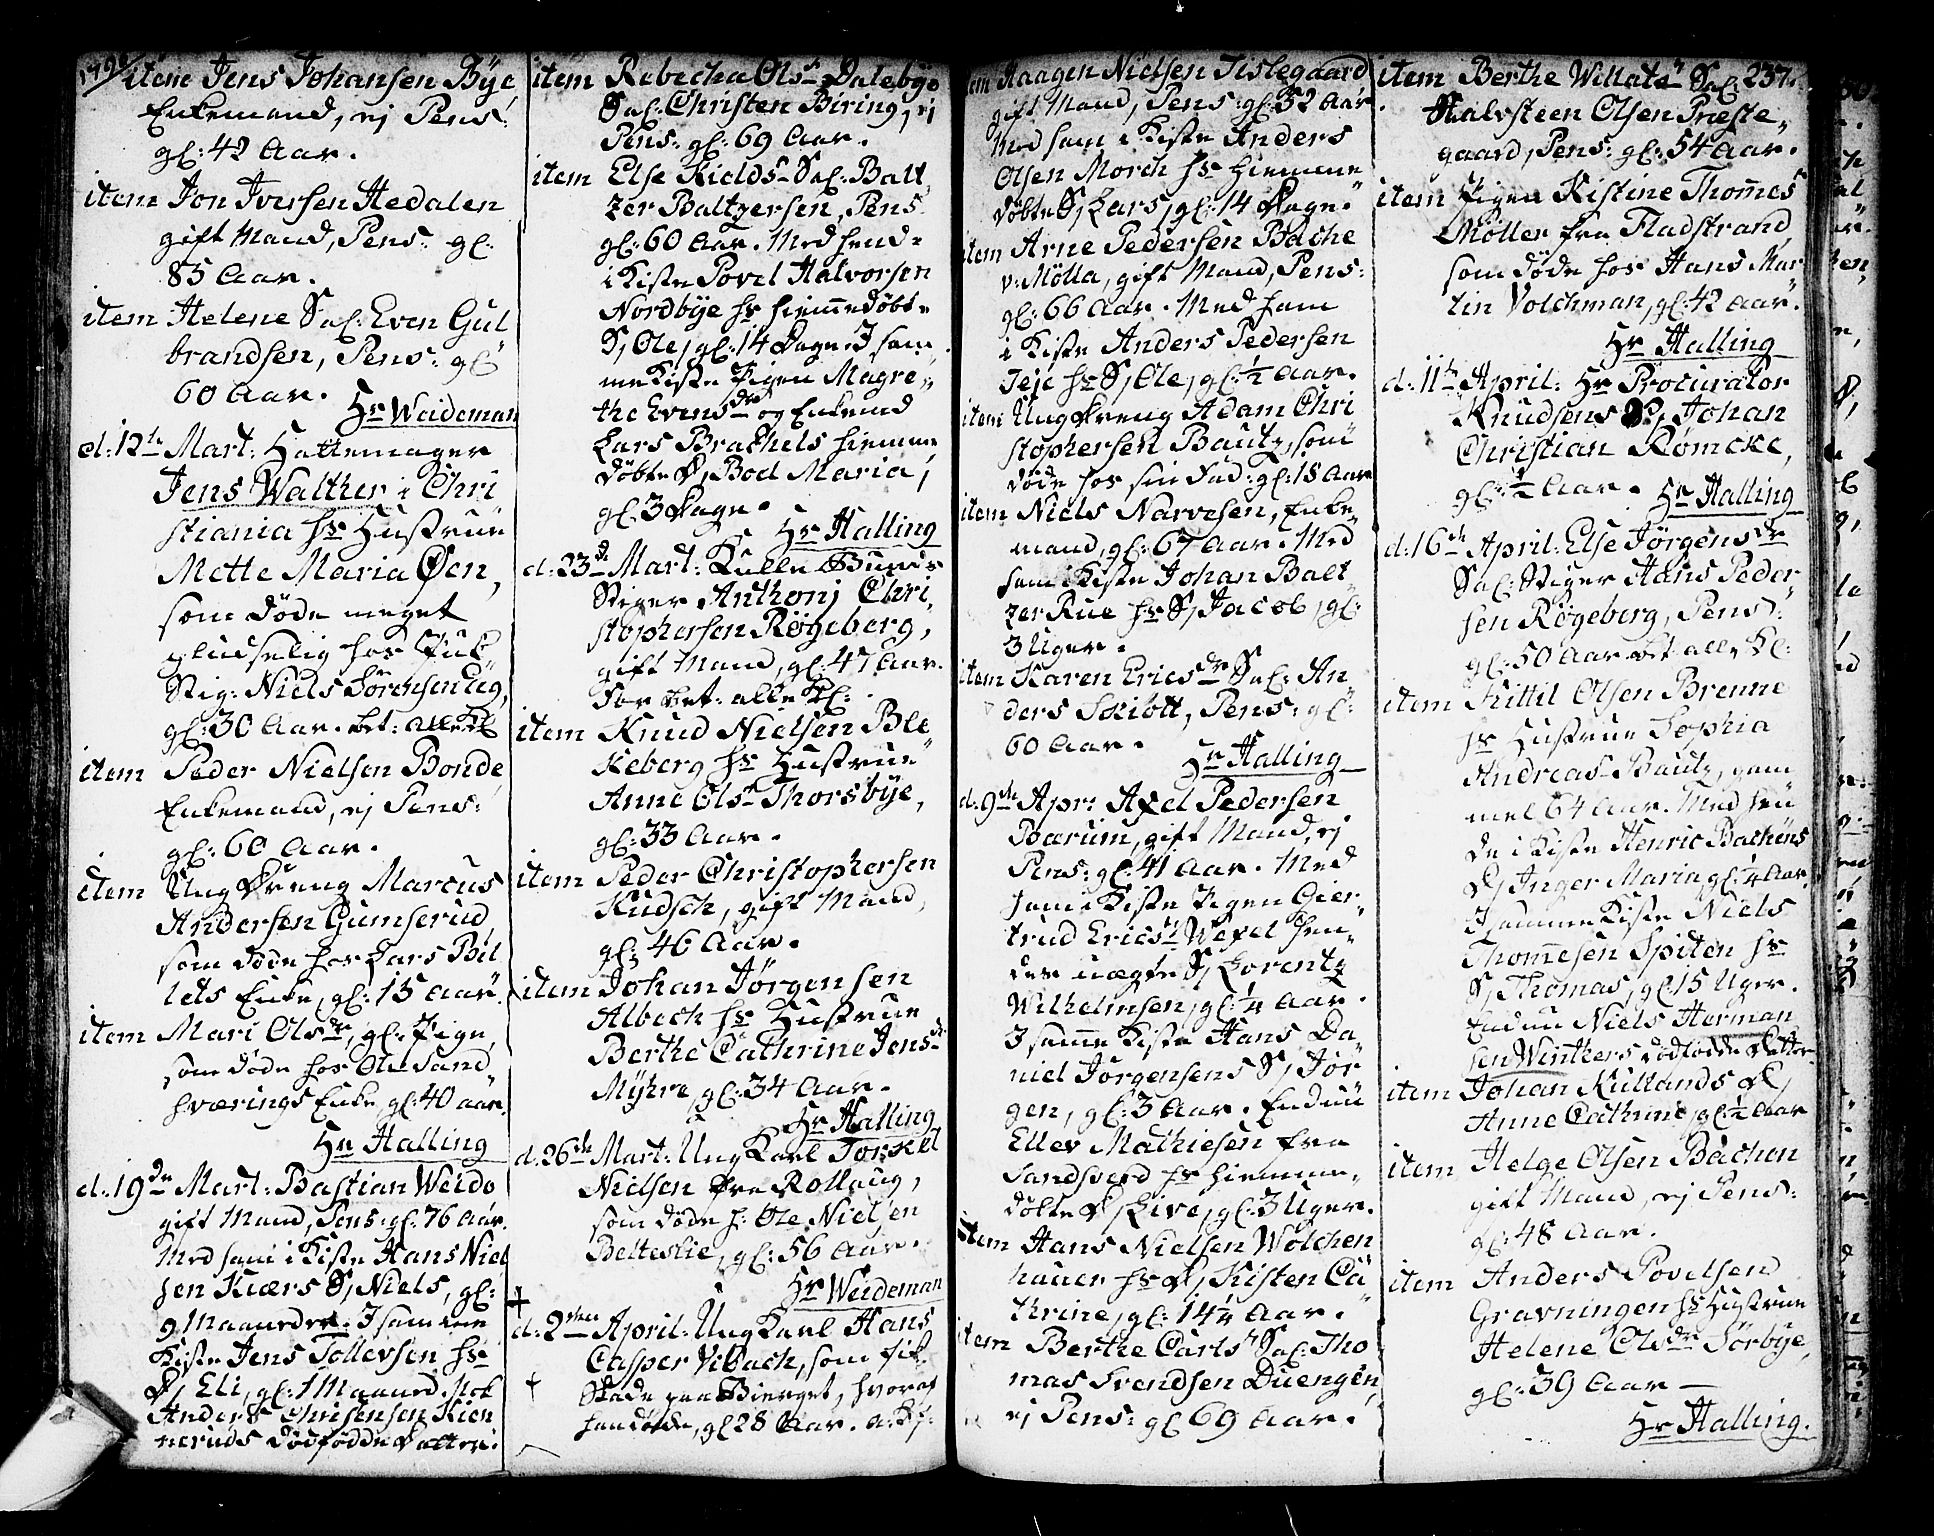 1790
item Jens Johansen Bÿe
Enkemand, ej Pens:
gl: 42 Aar.
item Jon Iversen Hedalen
gift Mand, Pens: gl:
85 Aar.
item Helene Sal: Even Gul
brandsen, Pens: gl:
60 Aar.
Hr Weideman
d: 12te Mart: Hattemager
Jens Walther i Chri
stiania hs Hustrue
Mette Maria Øen,
som døde meget
hos
Stig: Niels Sørensen
gl: 30 Aar. bet: alle Kl
item Peder Nielsen Bonde,
Enkemand, ej Pens:
gl: 60 Aar.
item Ung Dreng Marcus
Andersen Gumserud,
som døde hos Lars Bil
lets Enke, gl: 15 Aar.
item Mari Olsdr, gl: Pige,
som døde hos Ole Sand
sværings Enke, gl: 40 aar.
Hr Halling
d: 19de Mart: Bastian Weido
gift Mand, Pens: gl: 76 Aar.
Med ham i Kiste Hans Niel
sen Kiærs S, Niels, gl:
9 Maaneder. I samme
Kiste Jens Tollevsen hs
D, Eli, gl: 1 Maaned. Nok
Anders Chrisensen Kien
neruds dødfødde Datter.
item Rebecha Olsd Dalebÿe
Sal: Christen Biring, ej
Pens: gl: 69 Aar.
item Else Kields Sal: Balt
zer Baltzersen, Pens
gl: 60 Aar. Med hende
i Kiste Povel Halvorsen
Nordbÿe hs hiemmedøbte
S, Ole, gl: 14 Dage. I sam
me Kiste Pigen Magre
the Evensdr og Enkemd
Lars Brachels hiemme
døbte D, Bod Maria,
gl: 3 Dage.
Hr Halling
d: 23d Mart: Kulle Brænder
Stiger Anthonj Chri
stophersen Røgeberg,
gift Mand, gl: 47 Aar.
for bet: alle Kl:
item Knud Nielsen Ble
keberg hs Hustrue
Anne Olsd Thorsbÿe,
gl: 33 Aar.
item Peder Christophersen
Kudsch, gift Mand,
gl: 46 Aar.
item Johan Jørgensen
Albech hs Hustrue
Berthe Cathrine Jensdr
Mÿhre, gl: 34 Aar.
Hr Halling
d: 26de Mart: Ung Karl Torkel
Nielsen fra Rollaug,
som døde h: Ole Nielsen
Belteslie, gl: 56 Aar.
Hr Weideman
d: 2den April: Ung Karl Hans
Casper Vibach, som fik
Skade paa Bierget, hvoraf
han døde, gl 28 Aar.
item Haagen Nielsen Islegaard
gift Mand, Pens: gl: 52 Aar
Med ham i Kiste Anders
Olsen Morch hs hiemme
døbte S, Lars, gl: 14 Dage.
item Arne Pedersen Bache
v: Mölla, gift Mand, Pens:
gl: 66 Aar. Med ham
i Kiste Anders Pedersen
Jeje hs S, Ole, gl: ½ Aar.
item Ung Dreng Adam Chri
stophersen Bautz, som
døde hos sin Fad: gl: 18 Aar
item Niels Narvesen, Enke
mand, gl: 67 Aar. Med
ham i Kiste Johan Balt
zer Rue hs S, Jacob, gl:
3 Uger.
item Karen Ericsdr Sal: An
ders Skiött, Pens: gl:
60 Aar.
Hr Halling
d: 9de Apr: Axel Pedersen
Barum, gift Mand, ej
Pens: gl: 41 Aar. Med
ham i Kiste Pigen Gier
trud Ericsd Wexel hen
des uægte S, Lorentz
Wilhelmsen, gl: ¼ Aar.
I samme Kiste Hans Da
niel Jörgensens S, Jør
gen, gl: 3 Aar. Endnu
Ellev Mathiesen fra
Sandsverd hs hiemme
døbte D, Live, gl: 3 Uger.
item Hans Nielsen Wolchen
hauer hs D, Kisten Ca
thrine, gl: 14¼ Aar.
item Berthe Carlsd Sal: Tho
mas Svendsen Duengen
ej Pens: gl 69 Aar.
item Berthe Willatsd Sal: 237.
Halvsteen Olsen Præste
gaard, Pens: gl: 54 Aar.
item Pigen Kistine Thomes
Möller fra Fladstrand,
som døde hos Hans Mar
tin Volchman, gl: 42 Aar.
Hr Halling
d: 11te April: Hr Procurator
Knudsens S, Johan
Christian Rømcke,
gl: ½ Aar.
Hr Halling
d: 16de April: Else Jørgensdr
Sal: Stiger Hans Peder
sen Røgeberg, Pens:
gl: 50 Aar bet: alle Kl:
item Kittil Olsen Brenne
hs Hustrue Sophia
Andreasd Bautz, gam
mel 64 Aar. Med hen
de i Kiste Henric Bachens
D, Inger Maria, gl: ¼ Aar.
I samme Kiste Niels
Thommesen Spiten hs
S, Thomas, gl 15 Uger.
Endnu Niels Herman
sen Winthers dødfødde Datter
item Johan Kullands D,
Anne Cathrine, gl: ½ Aar
item Helge Olsen Bachen
gift Mand, ej Pens:
gl: 48 Aar.
item Anders Povelsen
Gravningen hs Hustrue
Helene Olsdr Sørbÿe,
gl: 39 Aar
Hr Halling.